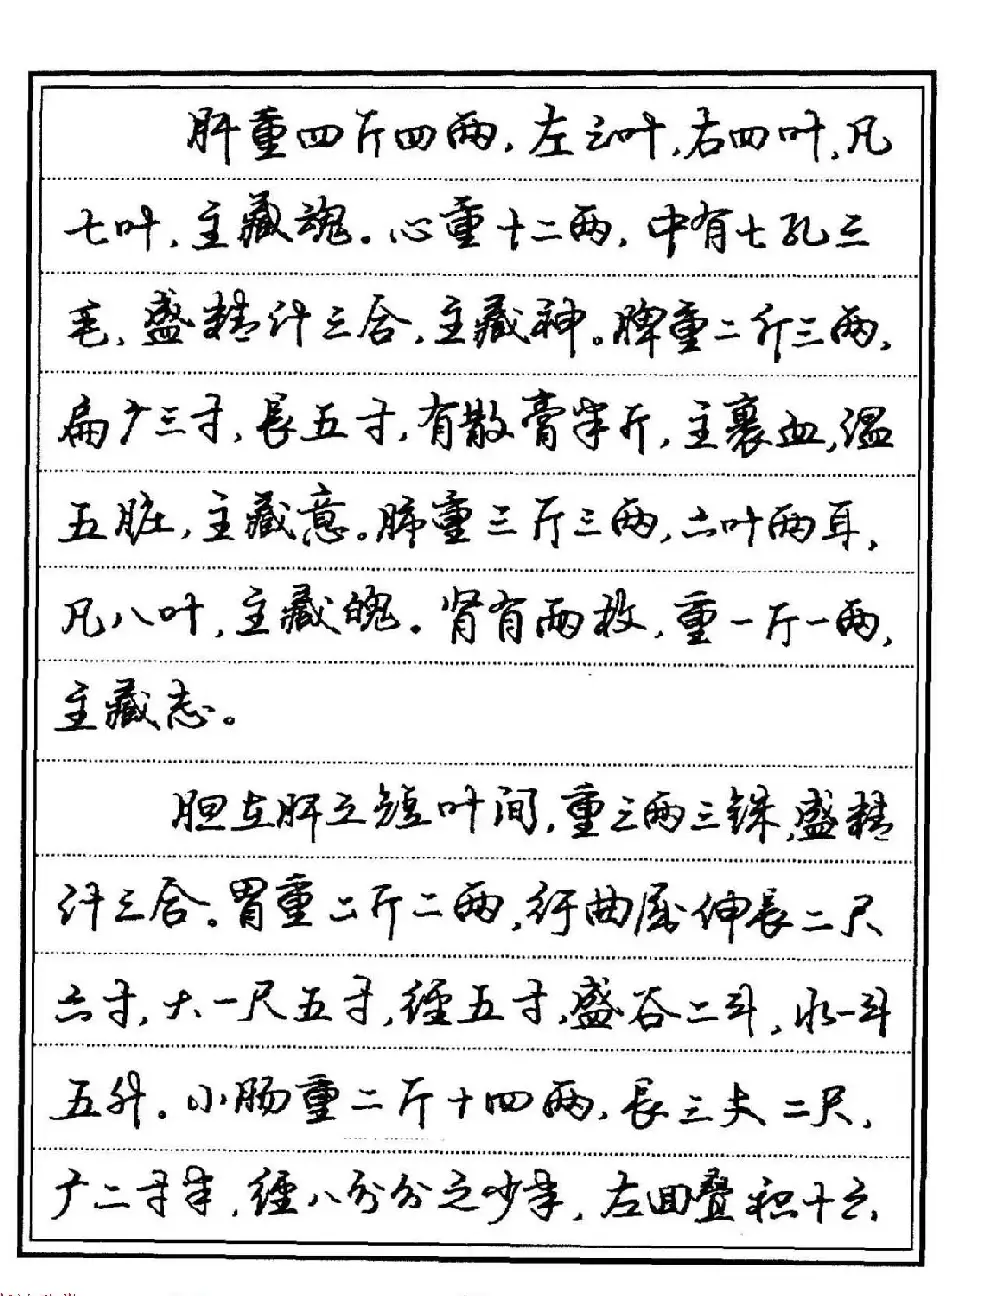 肝重四斤四两，左三叶，右四叶，凡
七叶，主藏魂。心重十二两，中有七孔三
毛，盛精汁三合，主藏神。脾重二斤三两，
扁广三寸，長五寸，有散膏半斤，主裹血，溫
五脏，主藏意。肺重三斤三两，六叶两耳，
凡八叶，主藏魄。肾有两枚，重一斤一两，
主藏志。
胆在肝之短叶间，重三两三铢，盛精
汁三合。胃重二斤二两，纡曲屈伸長二尺
六寸，大一尺五寸，徑五寸，盛谷二斗，水一斗
五升。小肠重二斤十四两，長三丈二尺，
广二寸半，徑八分分之少半，左回叠积十六